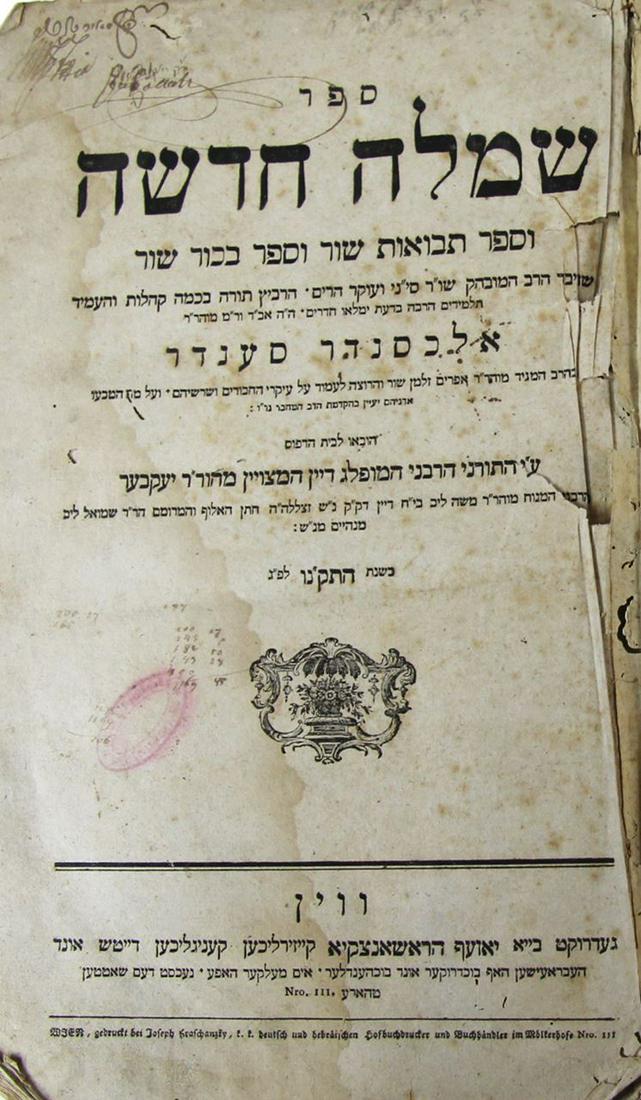 ספר
שמלה חדשה
וספר תבואות שור וספר בכור שור
שחיבר הרב המובהק שו"ר סי"ני ועוקר הרים · הרביץ תורה בכמה קהלות והעמיד
תלמידים הרבה בדעת ימלאו חדרים · ה"ה אב"ד ור"מ מוהר"ר
אלכסנדר סענדר
בהרב המגיד מוהר"ר אפרים זלמן שור והרוצה לעמוד על עיקרי החבורים ושרשיהם · ועל מה הטבעו
אדניהם יעיין בהקדמת הרב המחבר נר"ו :
הובאו לבית הדפוס
ע"י התורני הרבני המופלג דיין המצויין מהור"ר יעקבער
הרבני המנוח מוהר"ר משה ליב בי"ח דיין דק"ק נ"ש זצללה"ה חתן האלוף והמרומם הר"ר שמואל ליב
מנהיים מנ"ש :
בשנת התקנ"ו לפ"ג
ווין
געדרוקט בייא יאזעף הראשאנצקיא קייזירליכען קעניגליכען דייטש אונד
העבראעישען האף בוכדרוקער אונד בוכהענדלער · אים מעלקער האפע · נעכסט דעם שאטטען
טהארע Nro. III.
WIEN, gedruckt bei Joseph Hraschanzky, k. k. deutsch und hebräischen Hofbuchdrucker und Buchhändler im Mölkerhofe Nro. 111